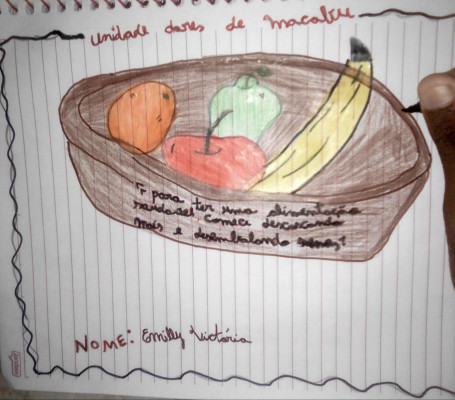 unidade dores de macabu
"para
ter uma alimentação
saudável comece descascando
mais e desembalando menos"
NOME: Emilly Victória